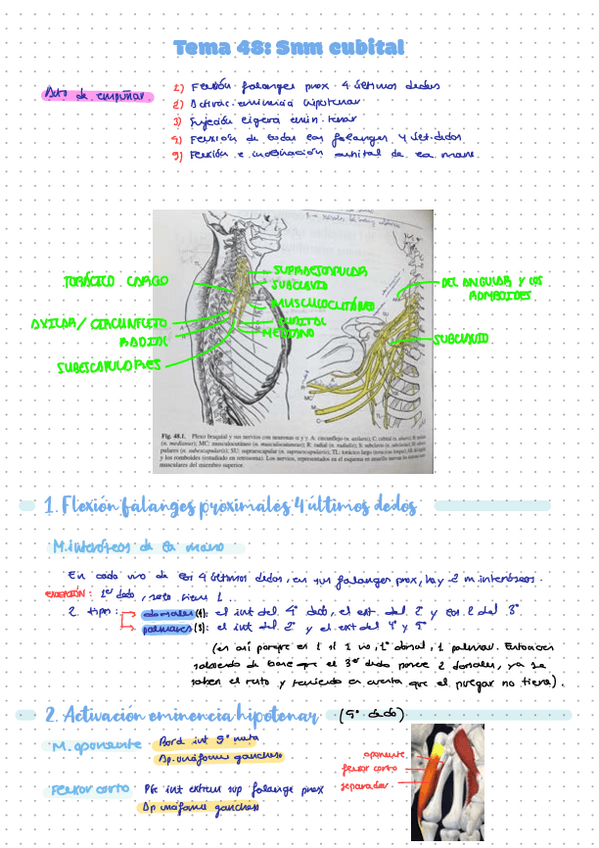 Tema 48: Snm cubital
Acto de empuñar
1) Flexión falanges prox. 4 últimos dedos
2) Activac. eminencia hipotenar
3) Sujeción ligera emin. tenar
4) Flexión de todas las falanges 4 últ. dedos
5) Flexión e inclinación cubital de la mano
TORÁCICO LARGO
SUPRAESCAPULAR
SUBCLAVIO
DEL ANGULAR Y LOS ROMBOIDES
MUSCULOCUTÁNEO
AXILAR/ CIRCUNFLEJO
CUBITAL
RADIAL
MEDIANO
SUBCLAVIO
SUBESCAPULARES
Fig. 48.1. Plexo braquial y sus nervios con neuronas α y γ. A: circunflejo (n. axilaris); C: cubital (n. ulnaris);
(n. medianus); MC: musculocutáneo (n. musculocutaneus); R: radial (n. radialis); S: subclavio (n. subclavius);
pulares (n. subscapularis); SU: supraescapular (n. suprascapularis); TL: torácico largo (toracicus longus);
y los romboides (estudiado en retrosoma). Los nervios, representados en el esquema en amarillo
musculares del miembro superior.
1. Flexión falanges proximales 4 últimos dedos
M. interóseos de la mano
En cada uno de los 4 últimos dedos, en sus falanges prox, hay 2 m interóseos.
EXCEPCIÓN: 1er dedo, solo tiene 1.
2 tipos: dorsales (4): el int del 4º dedo, el ext. del 2º y los 2 del 3º
palmares (3): el int del 2º y el ext del 4º y 5º
(es así porque es 1 sí 1 no, 1º dorsal, 1 palmar. Entonces
sabiendo de base que el 3er dedo posee 2 dorsales, ya se
saben el resto y teniendo en cuenta que el pulgar no tiene).
2. Activación eminencia hipotenar (5º dedo)
M. oponente
Bord int 5º meta
Ap. unciforme ganchoso
Flexor corto
Plc int extrem sup falange prox
Ap unciforme ganchoso
oponente
flexor corto
separador